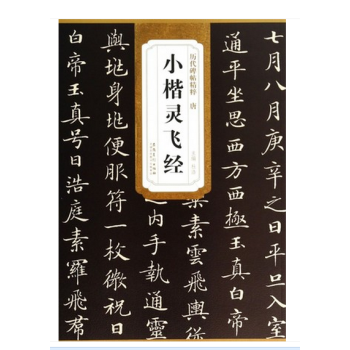 历代碑帖精粹 唐
小楷灵飞经
七月八月庚辛之日入室
通平坐思西方西極玉真白帝
素雲飛輿從
之内手執通靈
輿地身地便服符一枚微祝曰
白帝玉真号曰浩庭素羅飛